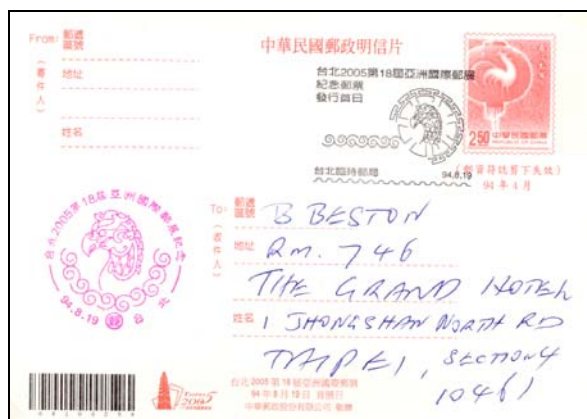 From:
郵遞
區號
地址
姓名
(寄件人)
中華民國郵政明信片
台北2005第18屆亞洲國際郵展
紀念郵票
發行首日
台北臨時郵局
94.8.19
2.50
中華民國郵票
REPUBLIC OF CHINA
(郵資符誌剪下失效)
94年4月
台北2005第18屆亞洲國際郵展紀念
94.8.19
台北
To:
郵遞
區號
地址
姓名
(收件人)
B BESTON
RM. 746
THE GRAND HOTEL
1 JHONGSHAN NORTH RD
TAIPEI, SECTION 4
10461
台北2005第18屆亞洲國際郵展
94年8月19日 首開日
中華郵政股份有限公司 敬贈
Taipei
2005